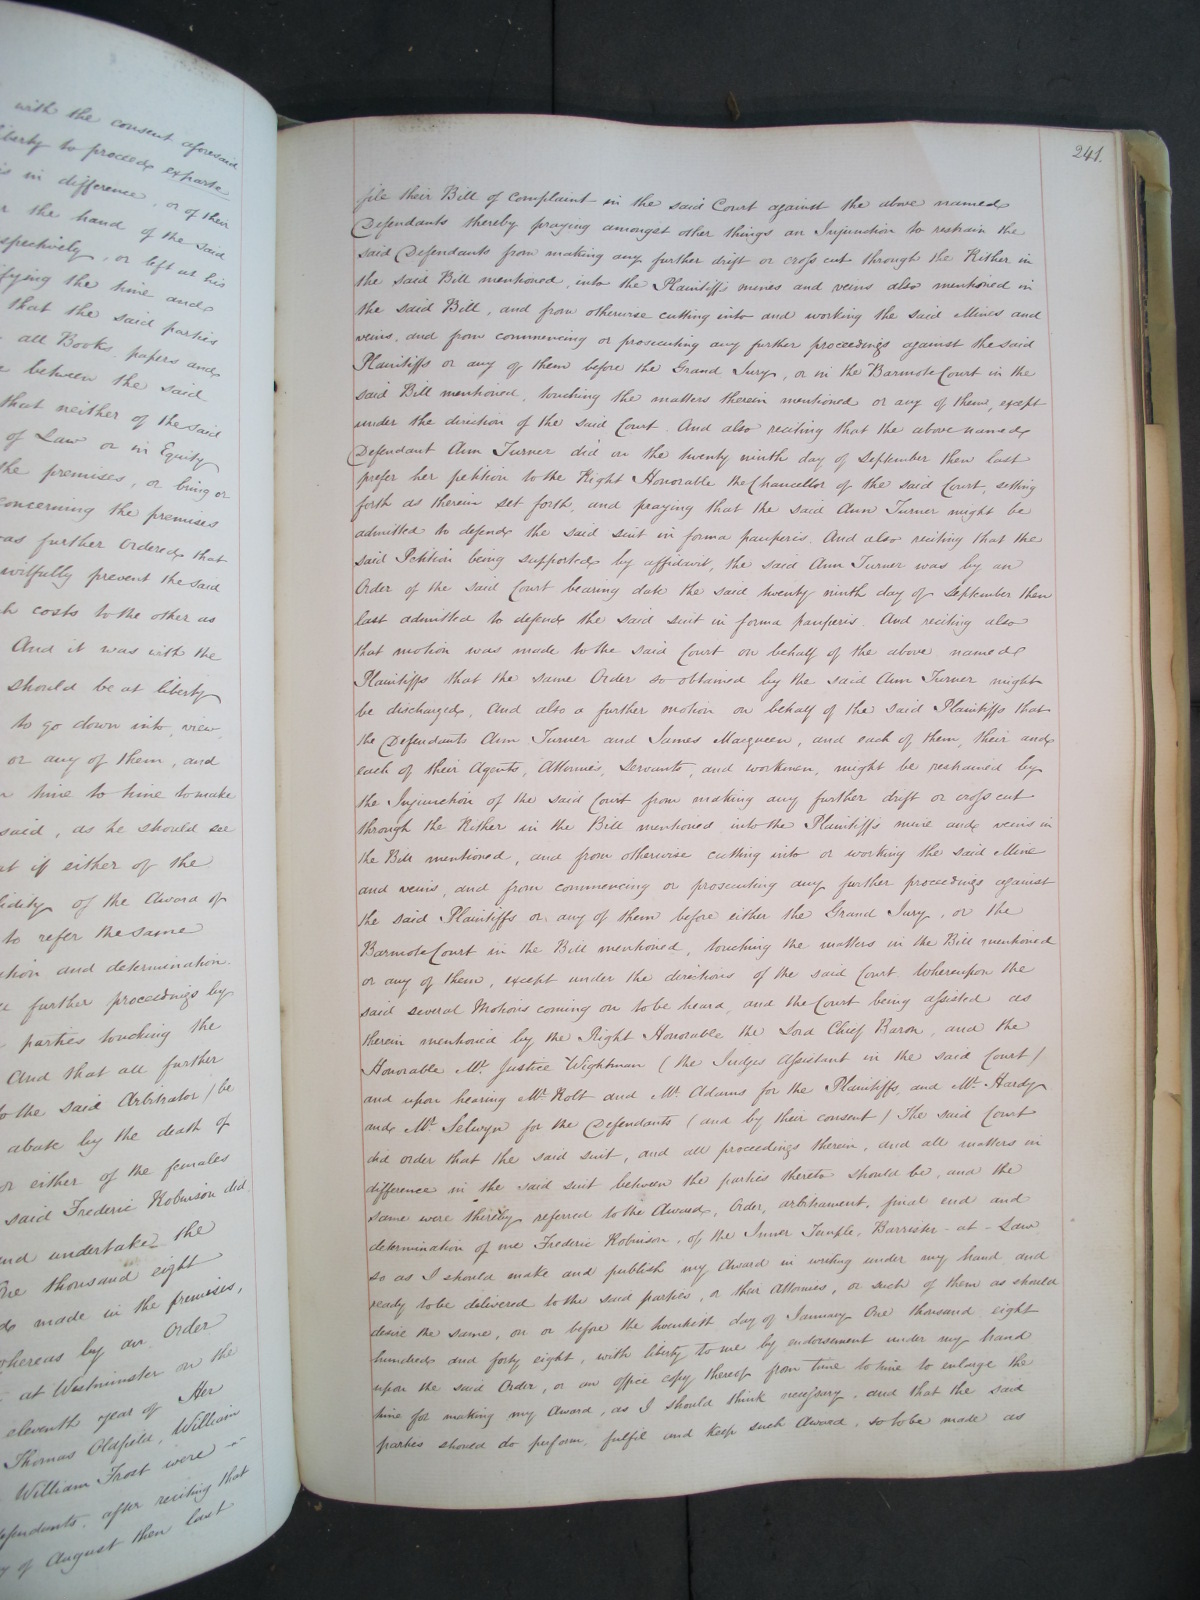 with the consent aforesaid
liberty to proceed exparte
in difference, or of their
the hand of the said
respectively, or left at his
the time and
that the said parties
all Books, papers and
between the said
that neither of the said
of Law or in Equity
the premises, or bring or
concerning the premises
was further Ordered that
wilfully prevent the said
costs to the other as
And it was with the
should be at liberty
to go down into, view,
or any of them, and
time to time to make
said, as he should see
if either of the
of the Award of
to refer the same
and determination.
further proceedings by
parties touching the
And that all further
to the said Arbitrator) be
abate by the death of
or either of the females
said Frederic Robinson did
and undertake the
One thousand eight
made in the premises,
whereas by an Order
at Westminster on the
eleventh year of Her
Thomas Oldfield, William
William Frost were
defendants, after reciting that
of August then last
241.
file their Bill of Complaint in the said Court against the above named
Defendants thereby praying amongst other things an Injunction to restrain the
said Defendants from making any further drift or cross cut through the Rither in
the said Bill mentioned, into the Plaintiffs mines and veins also mentioned in
the said Bill, and from otherwise cutting into and working the said Mines and
veins, and from commencing or prosecuting any further proceedings against the said
Plaintiffs or any of them before the Grand Jury, or in the Barmote Court in the
said Bill mentioned, touching the matters therein mentioned or any of them, except
under the direction of the said Court. And also reciting that the above named
Defendant Ann Turner did on the twenty ninth day of September then last
prefer her petition to the Right Honorable the Chancellor of the said Court, setting
forth as therein set forth, and praying that the said Ann Turner might be
admitted to defend the said suit in forma pauperis. And also reciting that the
said Petition being supported by affidavit, the said Ann Turner was by an
Order of the said Court bearing date the said twenty ninth day of September then
last admitted to defend the said suit in forma pauperis. And reciting also
that motion was made to the said Court on behalf of the above named
Plaintiffs that the same Order so obtained by the said Ann Turner might
be discharged, And also a further motion on behalf of the said Plaintiffs that
the Defendants Ann Turner and James Macqueen, and each of them, their and
each of their Agents, Attornies, Servants, and workmen, might be restrained by
the Injunction of the said Court from making any further drift or cross cut
through the Rither in the Bill mentioned into the Plaintiffs mine and veins in
the Bill mentioned, and from otherwise cutting into or working the said Mine
and veins, and from commencing or prosecuting any further proceedings against
the said Plaintiffs or any of them before either the Grand Jury, or the
Barmote Court in the Bill mentioned, touching the matters in the Bill mentioned
or any of them, except under the directions of the said Court. Whereupon the
said several Motions coming on to be heard, and the Court being assisted as
therein mentioned by the Right Honorable the Lord Chief Baron, and the
Honorable Mr. Justice Wightman (the Judges Assistant in the said Court)
and upon hearing Mr. Rolt and Mr. Adams for the Plaintiffs, and Mr. Hardy
and Mr. Selwyn for the Defendants (and by their consent) The said Court
did order that the said suit, and all proceedings therein, and all matters in
difference in the said suit between the parties thereto should be, and the
same were thereby referred to the Award, Order, arbitrament, final end and
determination of me Frederic Robinson, of the Inner Temple, Barrister-at-Law
so as I should make and publish my Award in writing under my hand and
ready to be delivered to the said parties, or their Attornies, or such of them as should
desire the same, on or before the twentieth day of January One thousand eight
hundred and forty eight, with liberty to me by endorsement under my hand
upon the said Order, or an office copy thereof from time to time to enlarge the
time for making my Award, as I should think necessary, and that the said
parties should do perform, fulfil and keep such Award, so to be made as